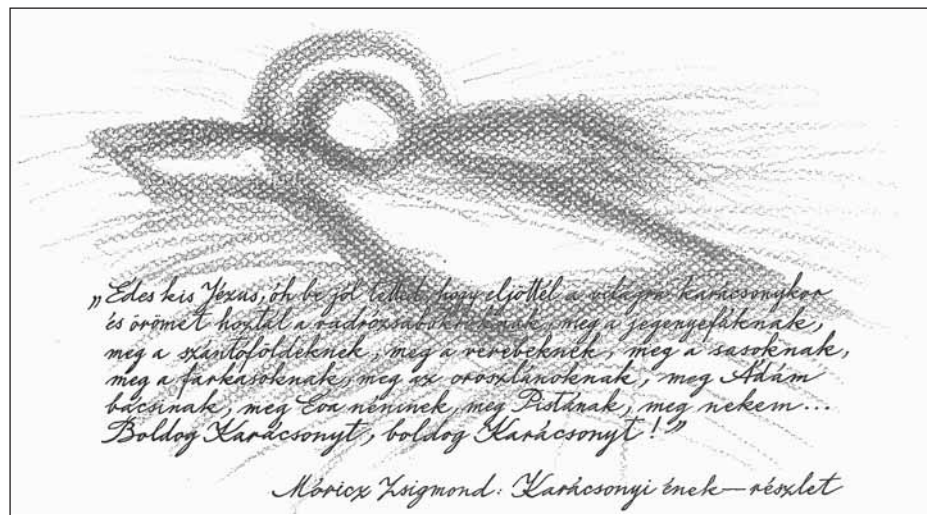 „Édes kis Jézus, óh be jól tetted, hogy eljöttél a világra karácsonykor
és örömet hoztál a vadrózsabokroknak, meg a jegenyefáknak,
meg a szántóföldeknek, meg a verebeknek, meg a sasoknak,
meg a farkasoknak, meg az oroszlánoknak, meg Ádám
bácsinak, meg Éva néninek, meg Pistának, meg nekem...
Boldog Karácsonyt, boldog Karácsonyt!”
Móricz Zsigmond: Karácsonyi ének – részlet